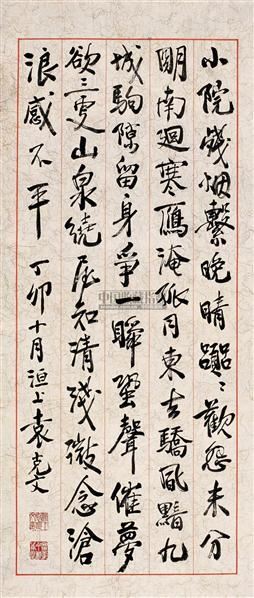 小院殘烟繫晚晴囂〻歡怨未分
明南迴寒雁淹孤月東去驕風黯九
城駒隙留身爭一瞬蛩聲催夢
欲三更山泉繞屋知清淺微念滄
浪感不平 丁卯十月洹上袁克文